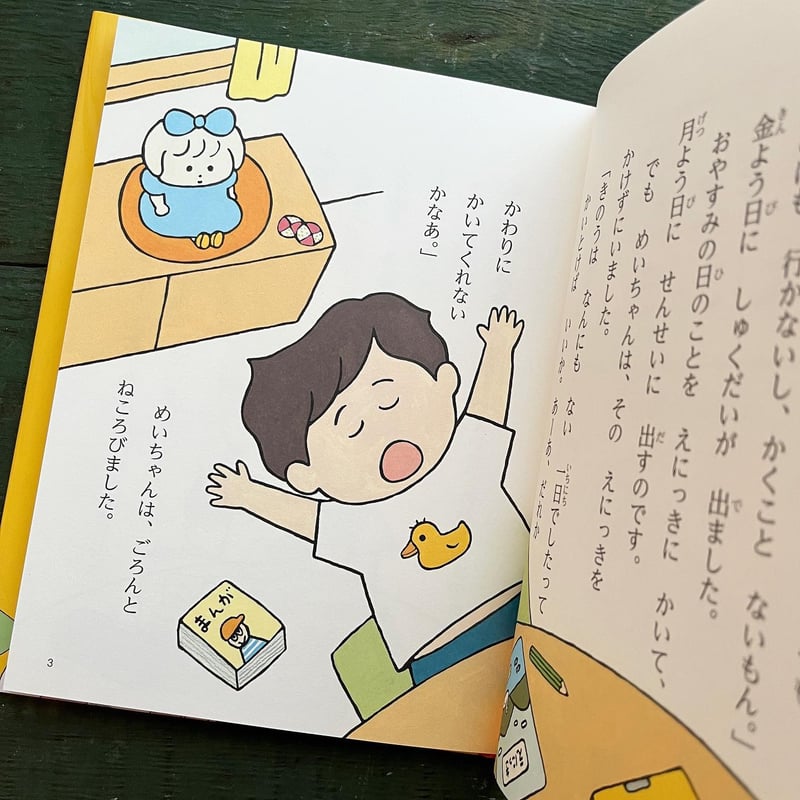 にも 行かないし、かくこと ないもん。」
きん び で
金よう日に しゅくだいが 出ました。
ひ
おやすみの日のことを えにっきに かいて、
げつ び だ
月よう日に せんせいに 出すのです。
でも めいちゃんは、その えにっきを
かけずにいました。
いちにち
「きのうは なんにも ない 一日でしたって
かいとけば いいか。あーあ、だれか
かわりに
かいてくれない
かなあ。」
めいちゃんは、ごろんと
ねころびました。
まんが
えにっき
3